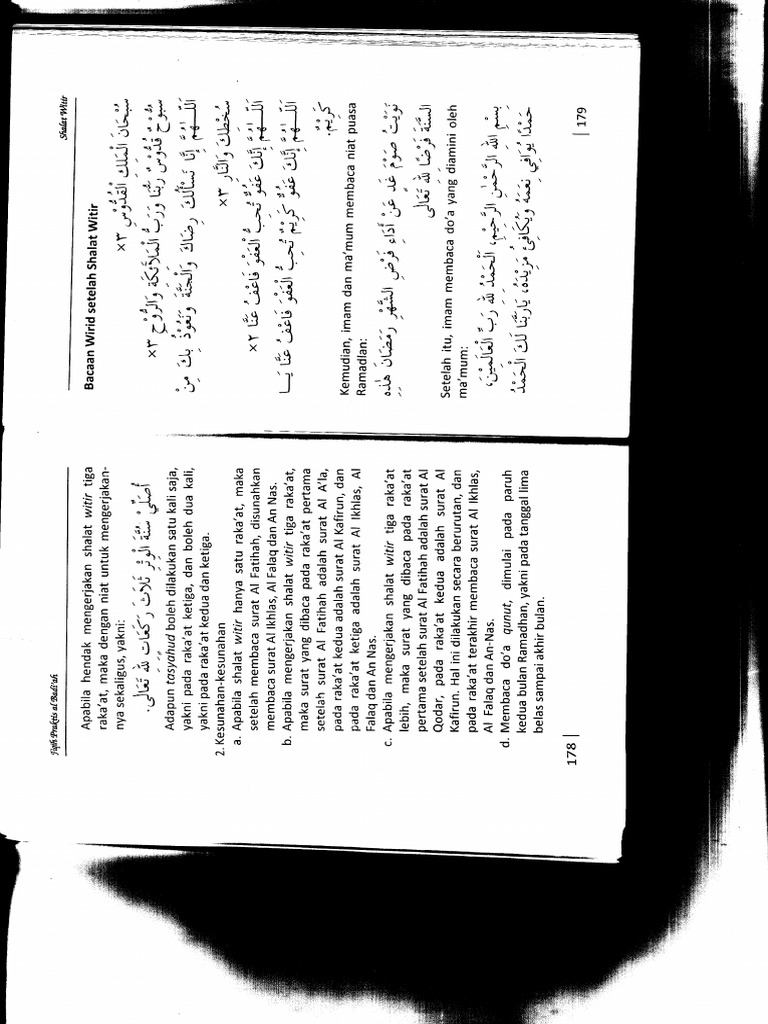 Fiqh Praktis al Badi'ah
Apabila hendak mengerjakan shalat witir tiga
raka'at, maka dengan niat untuk mengerjakan-
nya sekaligus, yakni:
أُصَلِّي سُنَّةَ الْوِتْرِ ثَلَاثَ رَكَعَاتٍ لِلّٰهِ تَعَالَى.
Adapun tasyahud boleh dilakukan satu kali saja,
yakni pada raka'at ketiga, dan boleh dua kali,
yakni pada raka'at kedua dan ketiga.
2. Kesunahan-kesunahan
a. Apabila shalat witir hanya satu raka'at, maka
setelah membaca surat Al Fatihah, disunahkan
membaca surat Al Ikhlas, Al Falaq dan An Nas.
b. Apabila mengerjakan shalat witir tiga raka'at,
maka surat yang dibaca pada raka'at pertama
setelah surat Al Fatihah adalah surat Al A'la,
pada raka'at kedua adalah surat Al Kafirun, dan
pada raka'at ketiga adalah surat Al Ikhlas, Al
Falaq dan An Nas.
c. Apabila mengerjakan shalat witir tiga raka'at
lebih, maka surat yang dibaca pada raka'at
pertama setelah surat Al Fatihah adalah surat Al
Qodar, pada raka'at kedua adalah surat Al
Kafirun. Hal ini dilakukan secara berurutan, dan
pada raka'at terakhir membaca surat Al Ikhlas,
Al Falaq dan An-Nas.
d. Membaca do'a qunut, dimulai pada paruh
kedua bulan Ramadhan, yakni pada tanggal lima
belas sampai akhir bulan.
178 |
Shalat Witir
Bacaan Wirid setelah Shalat Witir
سُبْحَانَ الْمَلِكِ الْقُدُّوْسِ ×٣
سُبُّوْحٌ قُدُّوْسٌ رَبُّنَا وَرَبُّ الْمَلَائِكَةِ وَالرُّوْحِ ×٣
اَللّٰهُمَّ إِنَّا نَسْأَلُكَ رِضَاكَ وَالْجَنَّةَ وَنَعُوْذُ بِكَ مِنْ
سُخْطِكَ وَالنَّارِ ×٣
اَللّٰهُمَّ إِنَّكَ عَفُوٌّ تُحِبُّ الْعَفْوَ فَاعْفُ عَنَّا ×٢
اَللّٰهُمَّ إِنَّكَ عَفُوٌّ كَرِيْمٌ تُحِبُّ الْعَفْوَ فَاعْفُ عَنَّا يَا
كَرِيْمُ.
Kemudian, imam dan ma'mum membaca niat puasa
Ramadlan:
نَوَيْتُ صَوْمَ غَدٍ عَنْ أَدَاءِ فَرْضِ الشَّهْرِ رَمَضَانَ هٰذِهِ
السَّنَةَ فَرْضًا لِلّٰهِ تَعَالَى
Setelah itu, imam membaca do'a yang diamini oleh
ma'mum:
بِسْمِ اللهِ الرَّحْمٰنِ الرَّحِيْمِ، اَلْحَمْدُ لِلّٰهِ رَبِّ الْعَالَمِيْنَ،
حَمْدًا يُوَافِي نِعَمَهُ وَيُكَافِئُ مَزِيْدَهُ، يَارَبَّنَا لَكَ الْحَمْدُ
| 179